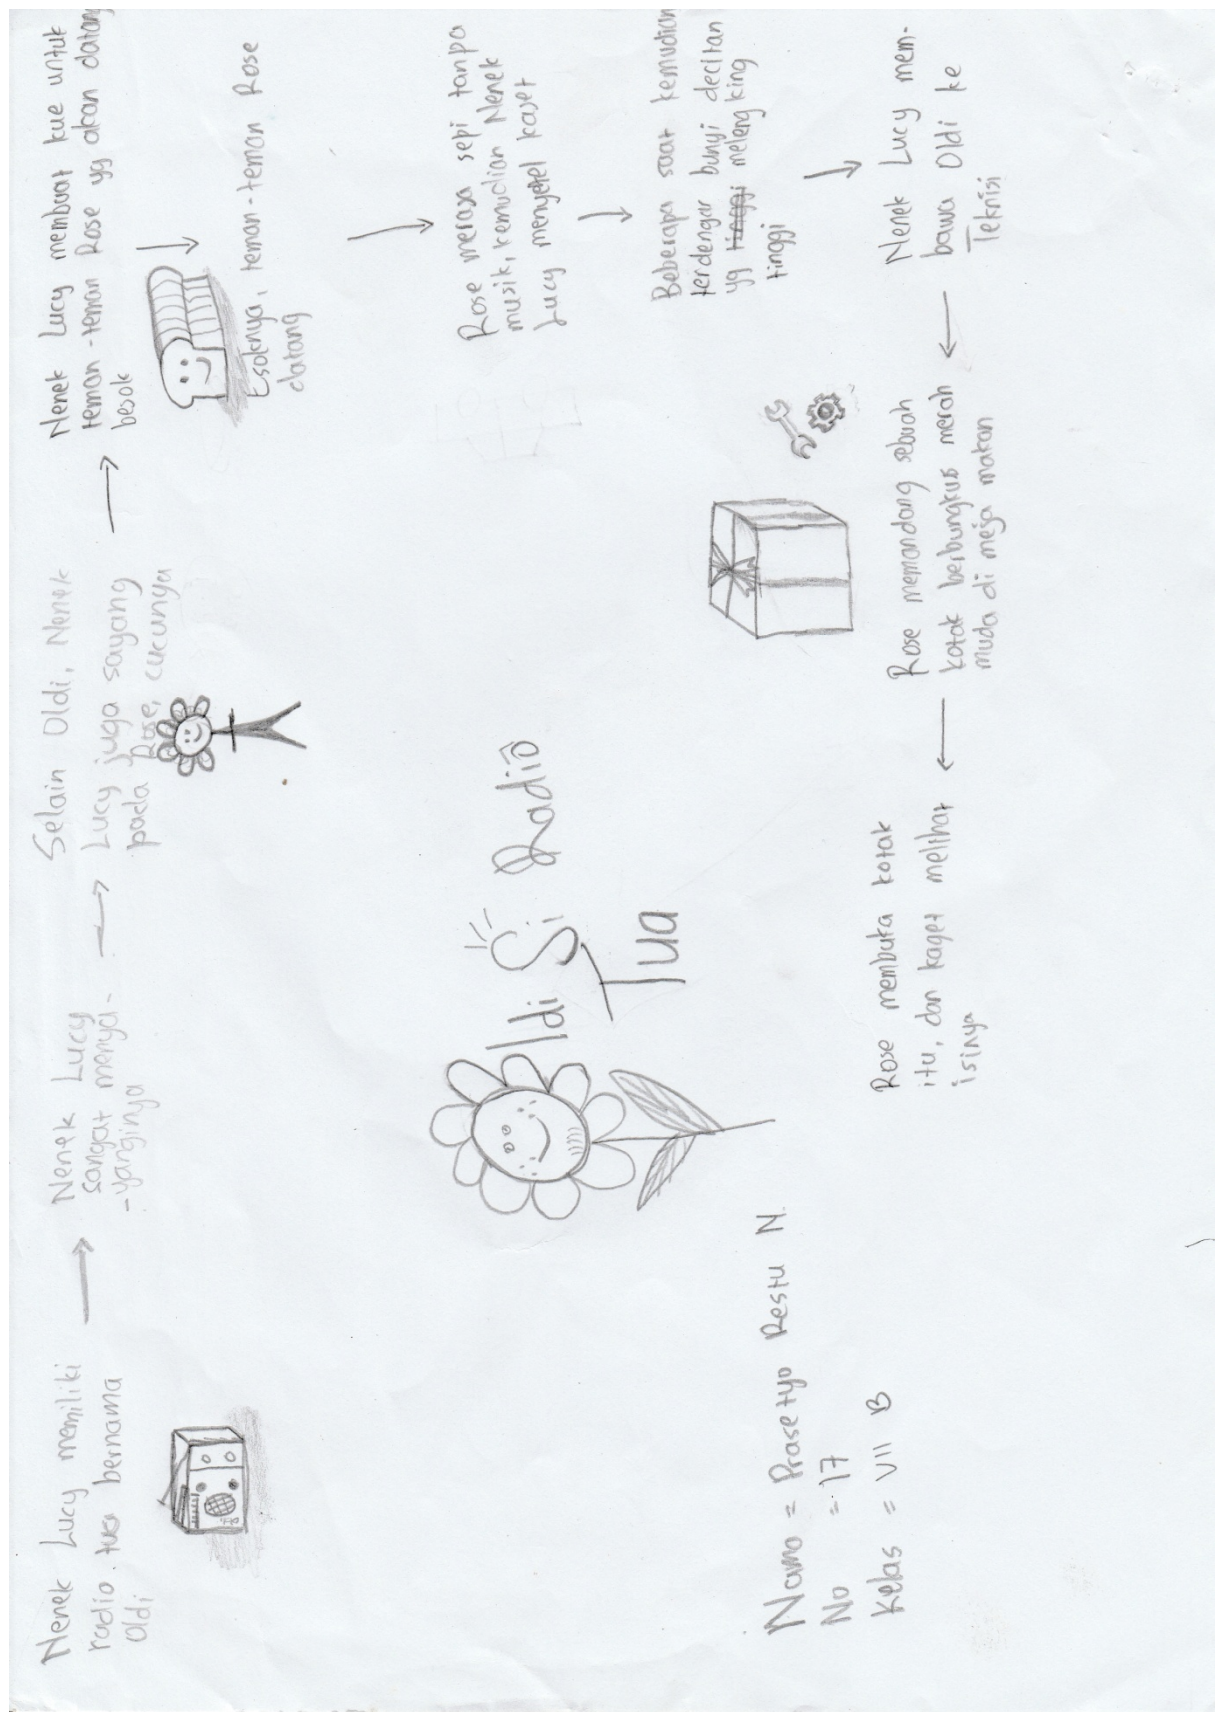 Nenek Lucy memiliki
radio tua bernama
Oldi
Nenek Lucy
sangat menya-
-yanginya
Selain Oldi, Nenek
Lucy juga sayang
pada Rose, cucunya
Nenek Lucy membuat kue untuk
teman-teman Rose yg akan datang
besok
Esoknya, teman-teman Rose
datang
Rose merasa sepi tanpa
musik, kemudian Nenek
Lucy menyetel kaset
Beberapa saat kemudian
terdengar bunyi decitan
yg tinggi melengking
tinggi
Nenek Lucy mem-
bawa Oldi ke
Teknisi
Rose memandang sebuah
kotak berbungkus merah
muda di meja makan
Rose membuka kotak
itu, dan kaget melihat
isinya
ldi Si Radio
Tua
Nama = Prasetyo Restu N.
No = 17
Kelas = VII B